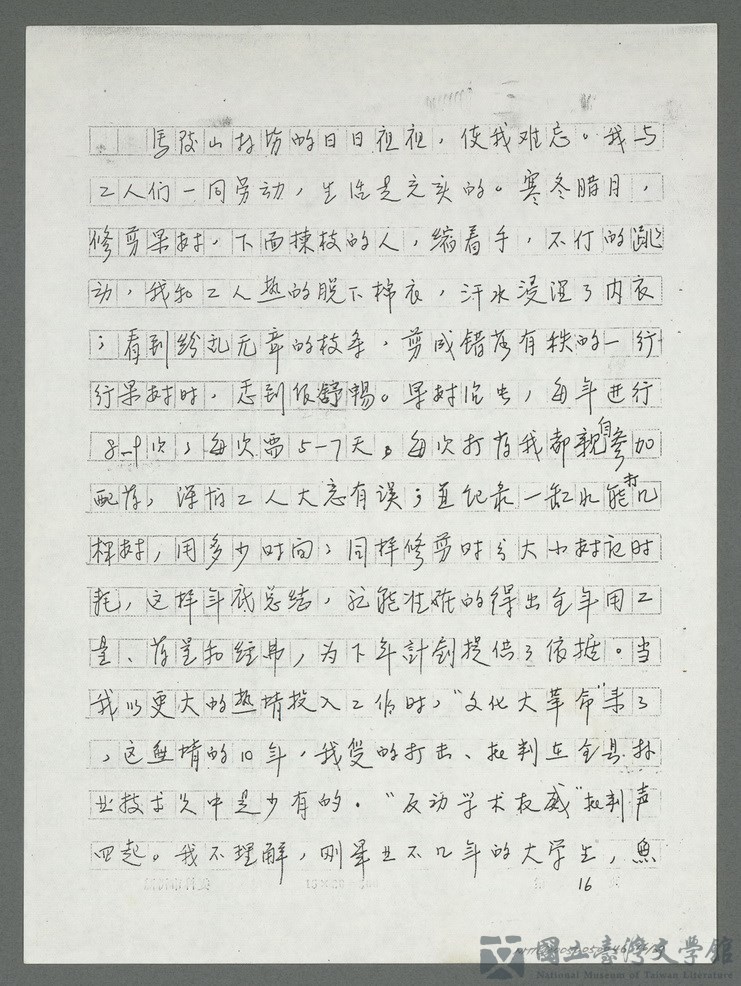 马陵山林场的日日夜夜，使我难忘。我与
工人们一同劳动，生活是充实的。寒冬腊月，
修剪果树，下面拣枝的人，缩着手，不停的跳
动，我和工人热的脱下棉衣，汗水浸湿了内衣
；看到纷乱无章的枝条，剪成错落有秩的一行
行果树时，感到很舒畅。果树治虫，每年进行
8—9次，每次需5-7天，每次打药我都亲自参加
配药，深怕工人大意有误；直纪录一缸水能打几
棵树，用多少时间；同样修剪时分大小树记时
耗，这样年底总结，就能准确的得出全年用工
量、药量和经费，为下年計划提供了依据。当
我以更大的热情投入工作时，“文化大革命”来了
，这無情的10年，我受的打击、批判在全县林
业技术人中是少有的。“反动学术权威”批判声
四起。我不理解，刚毕业不几年的大学生，無
16
國立臺灣文學館
National Museum of Taiwan Literature